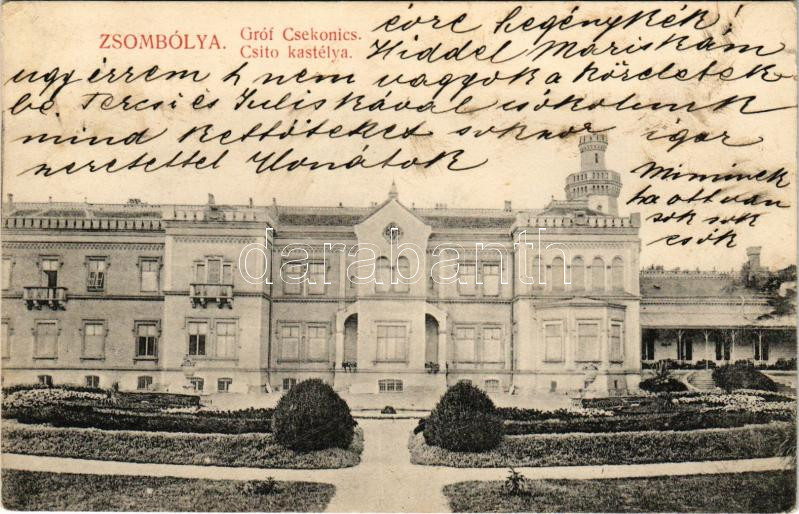 ZSOMBÓLYA. Gróf Csekonics.
Csito kastélya.
évre hegénykék!
Hiddel Mariskám
úgy érrem h nem vagyok a közeletek
be. Tercsi és Juliskával csókolunk
mind kettőteket sokszor igar
szeretettel Ilonátok
Miminek
ha ott van
sok sok
csók
darabanth